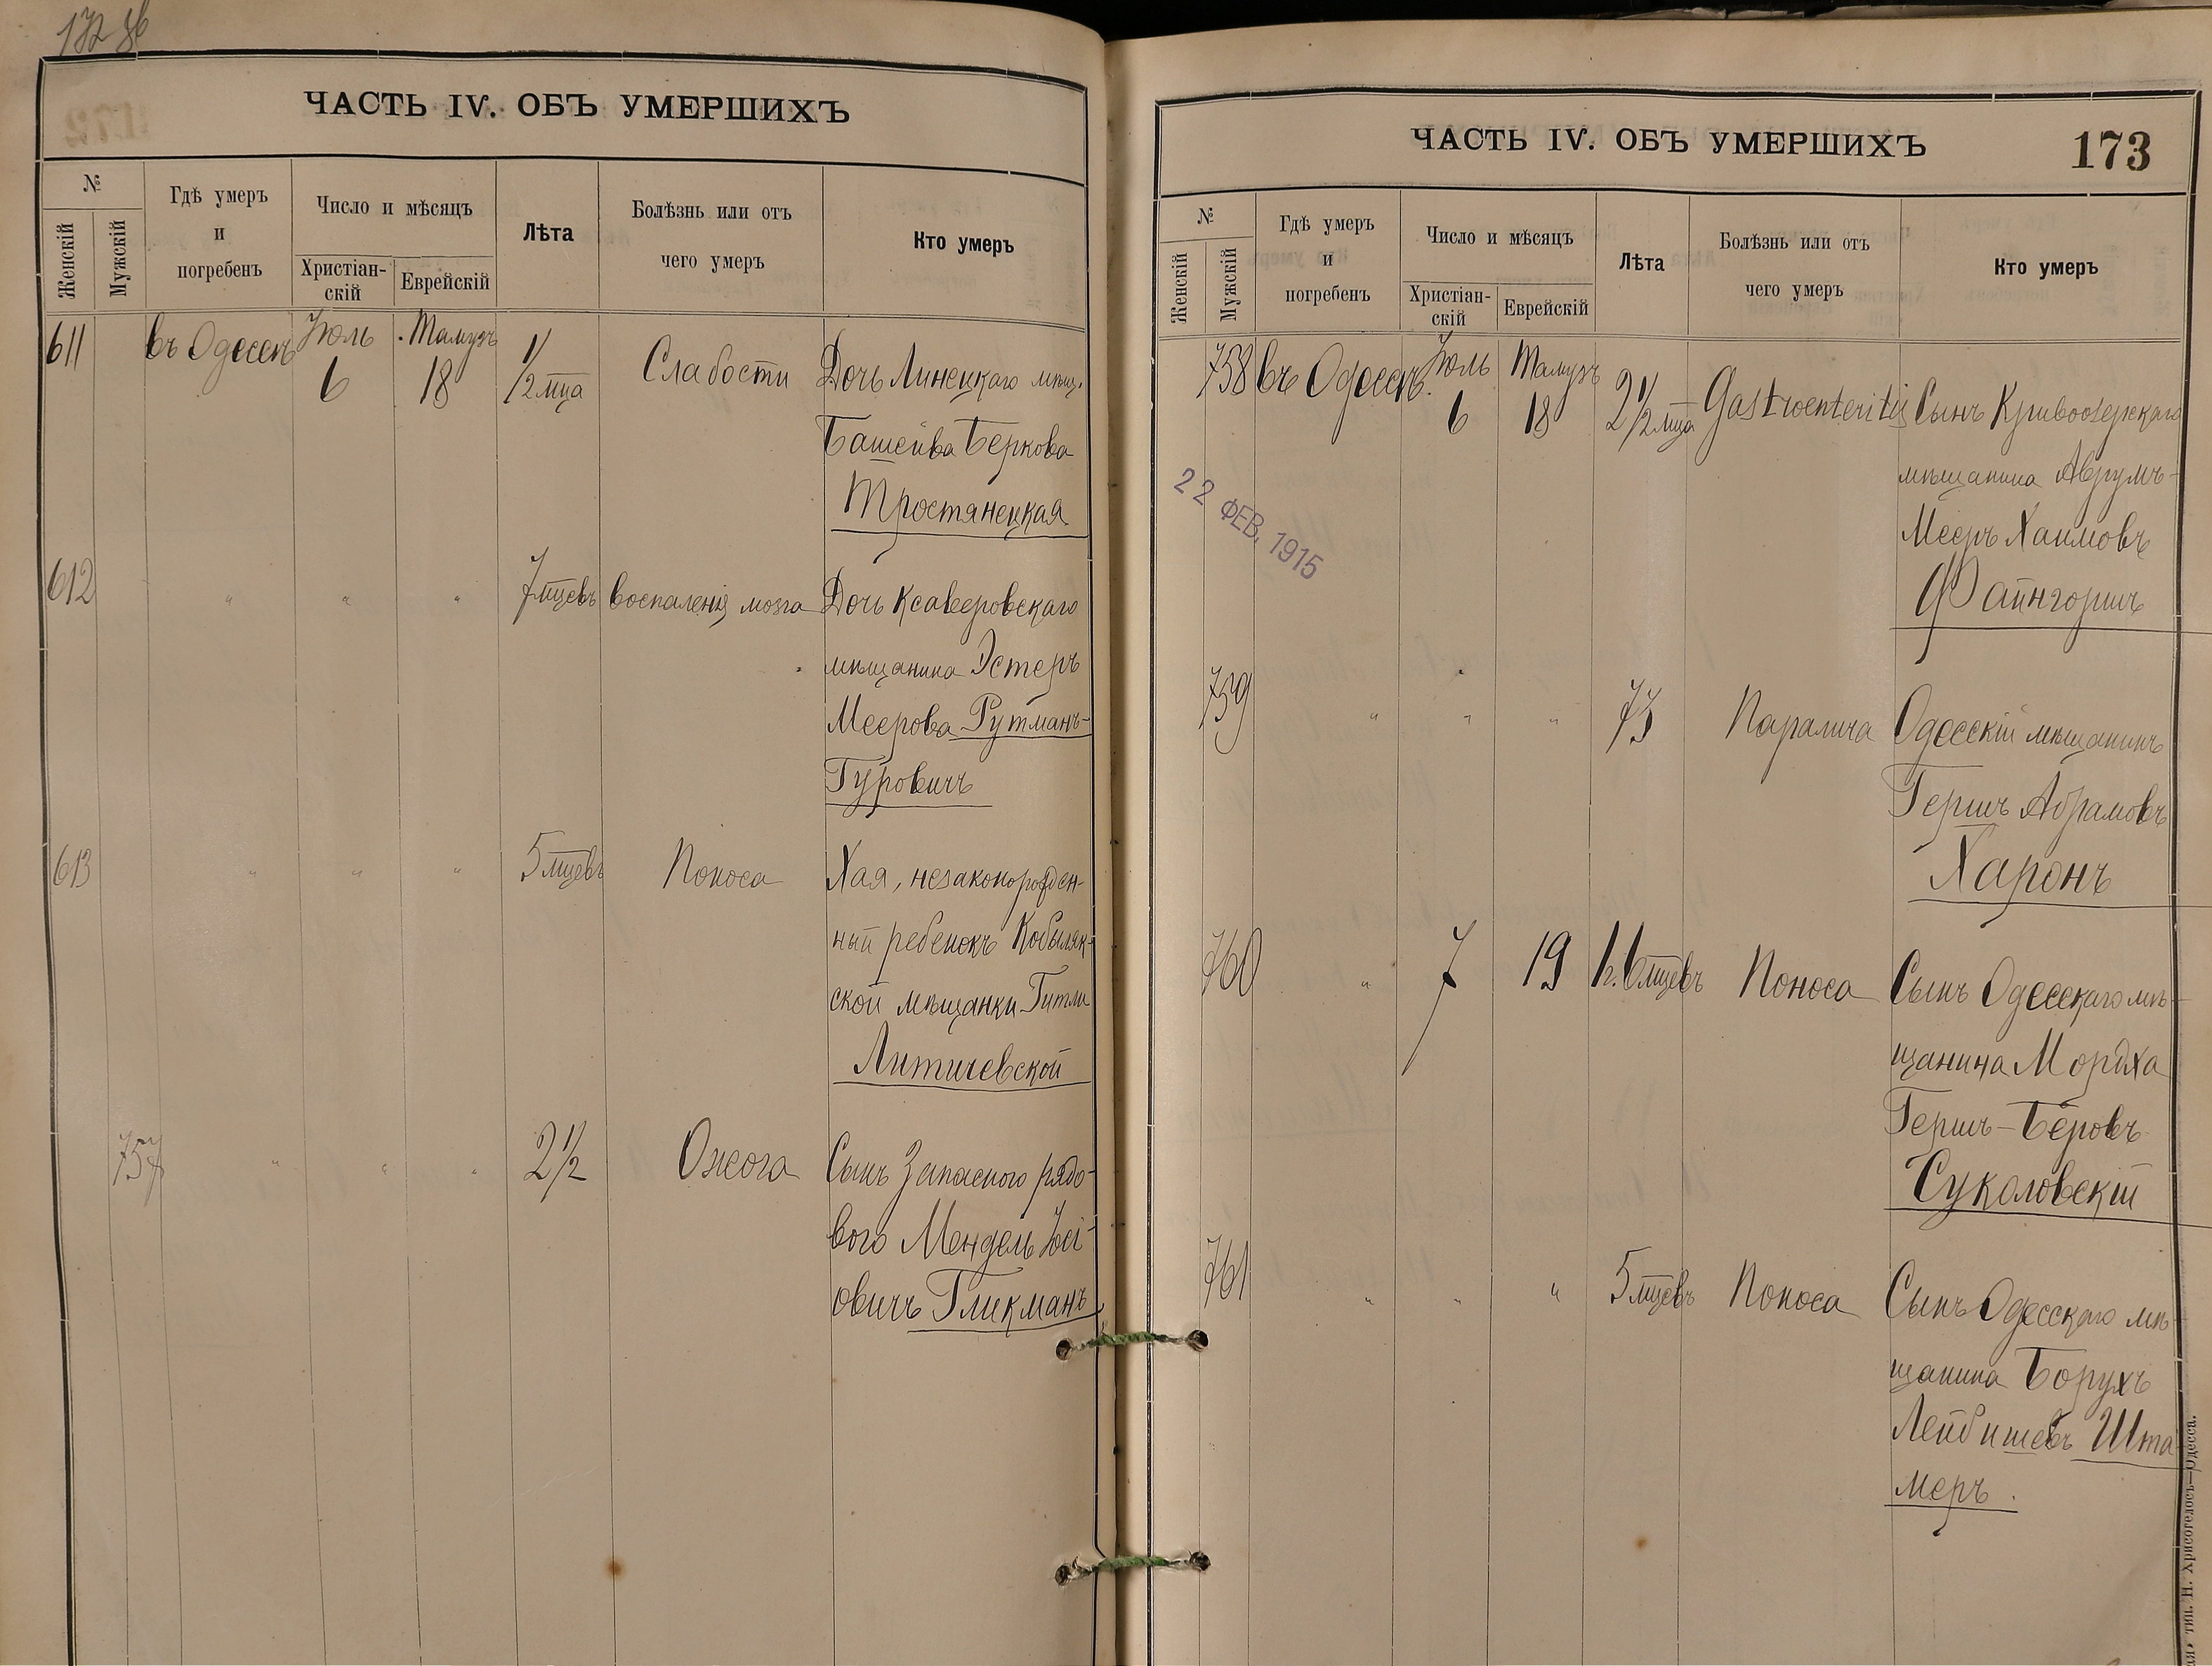 172 об
ЧАСТЬ IV. ОБЪ УМЕРШИХЪ
№
Женскій
Мужскій
Гдѣ умеръ
и
погребенъ
Число и мѣсяцъ
Христіан-
скій
Еврейскій
Лѣта
Болѣзнь или отъ
чего умеръ
Кто умеръ
611 въ Одессѣ Іюль 6 Тамузъ 18 1/2 мца Слабости Дочь Линецкаго мѣщ.
Башейва Беркова
Тростянецкая
612 " " " 7 мцевъ воспаленія мозга Дочь Ксаверовскаго
мѣщанина Эстеръ
Меерова Рутманъ-
Гуровичъ
613 " " " 5 мцевъ Поноса Хая, незаконорожден-
ный ребенокъ Кобыляк-
ской мѣщанки Гитли
Литичевской
757 " " " 2 1/2 Ожога Сынъ Запасного рядо-
вого Мендель Іосі-
овичъ Гликманъ
ЧАСТЬ IV. ОБЪ УМЕРШИХЪ
173
№
Женскій
Мужскій
Гдѣ умеръ
и
погребенъ
Число и мѣсяцъ
Христіан-
скій
Еврейскій
Лѣта
Болѣзнь или отъ
чего умеръ
Кто умеръ
758 въ Одессѣ. Іюль 6 Тамузъ 18 2 1/2 мца Gastroenteritis Сынъ Кривоозерскаго
мѣщанина Аврумъ-
Мееръ Хаимовъ
Файнгоршъ
22 ФЕВ. 1915
759 " " " 73 Паралича Одесскій мѣщанинъ
Гершъ Абрамовъ
Харонъ
760 " 7 19 1 г. 6 мцевъ Поноса Сынъ Одесскаго мѣ-
щанина Мордха
Гершъ-Беровъ
Сукаловскій
761 " " " 5 мцевъ Поноса Сынъ Одесскаго мѣ-
щанина Борухъ
Лейбишевъ Шта-
меръ.
тип. Н. Хрисогелосъ—Одесса.